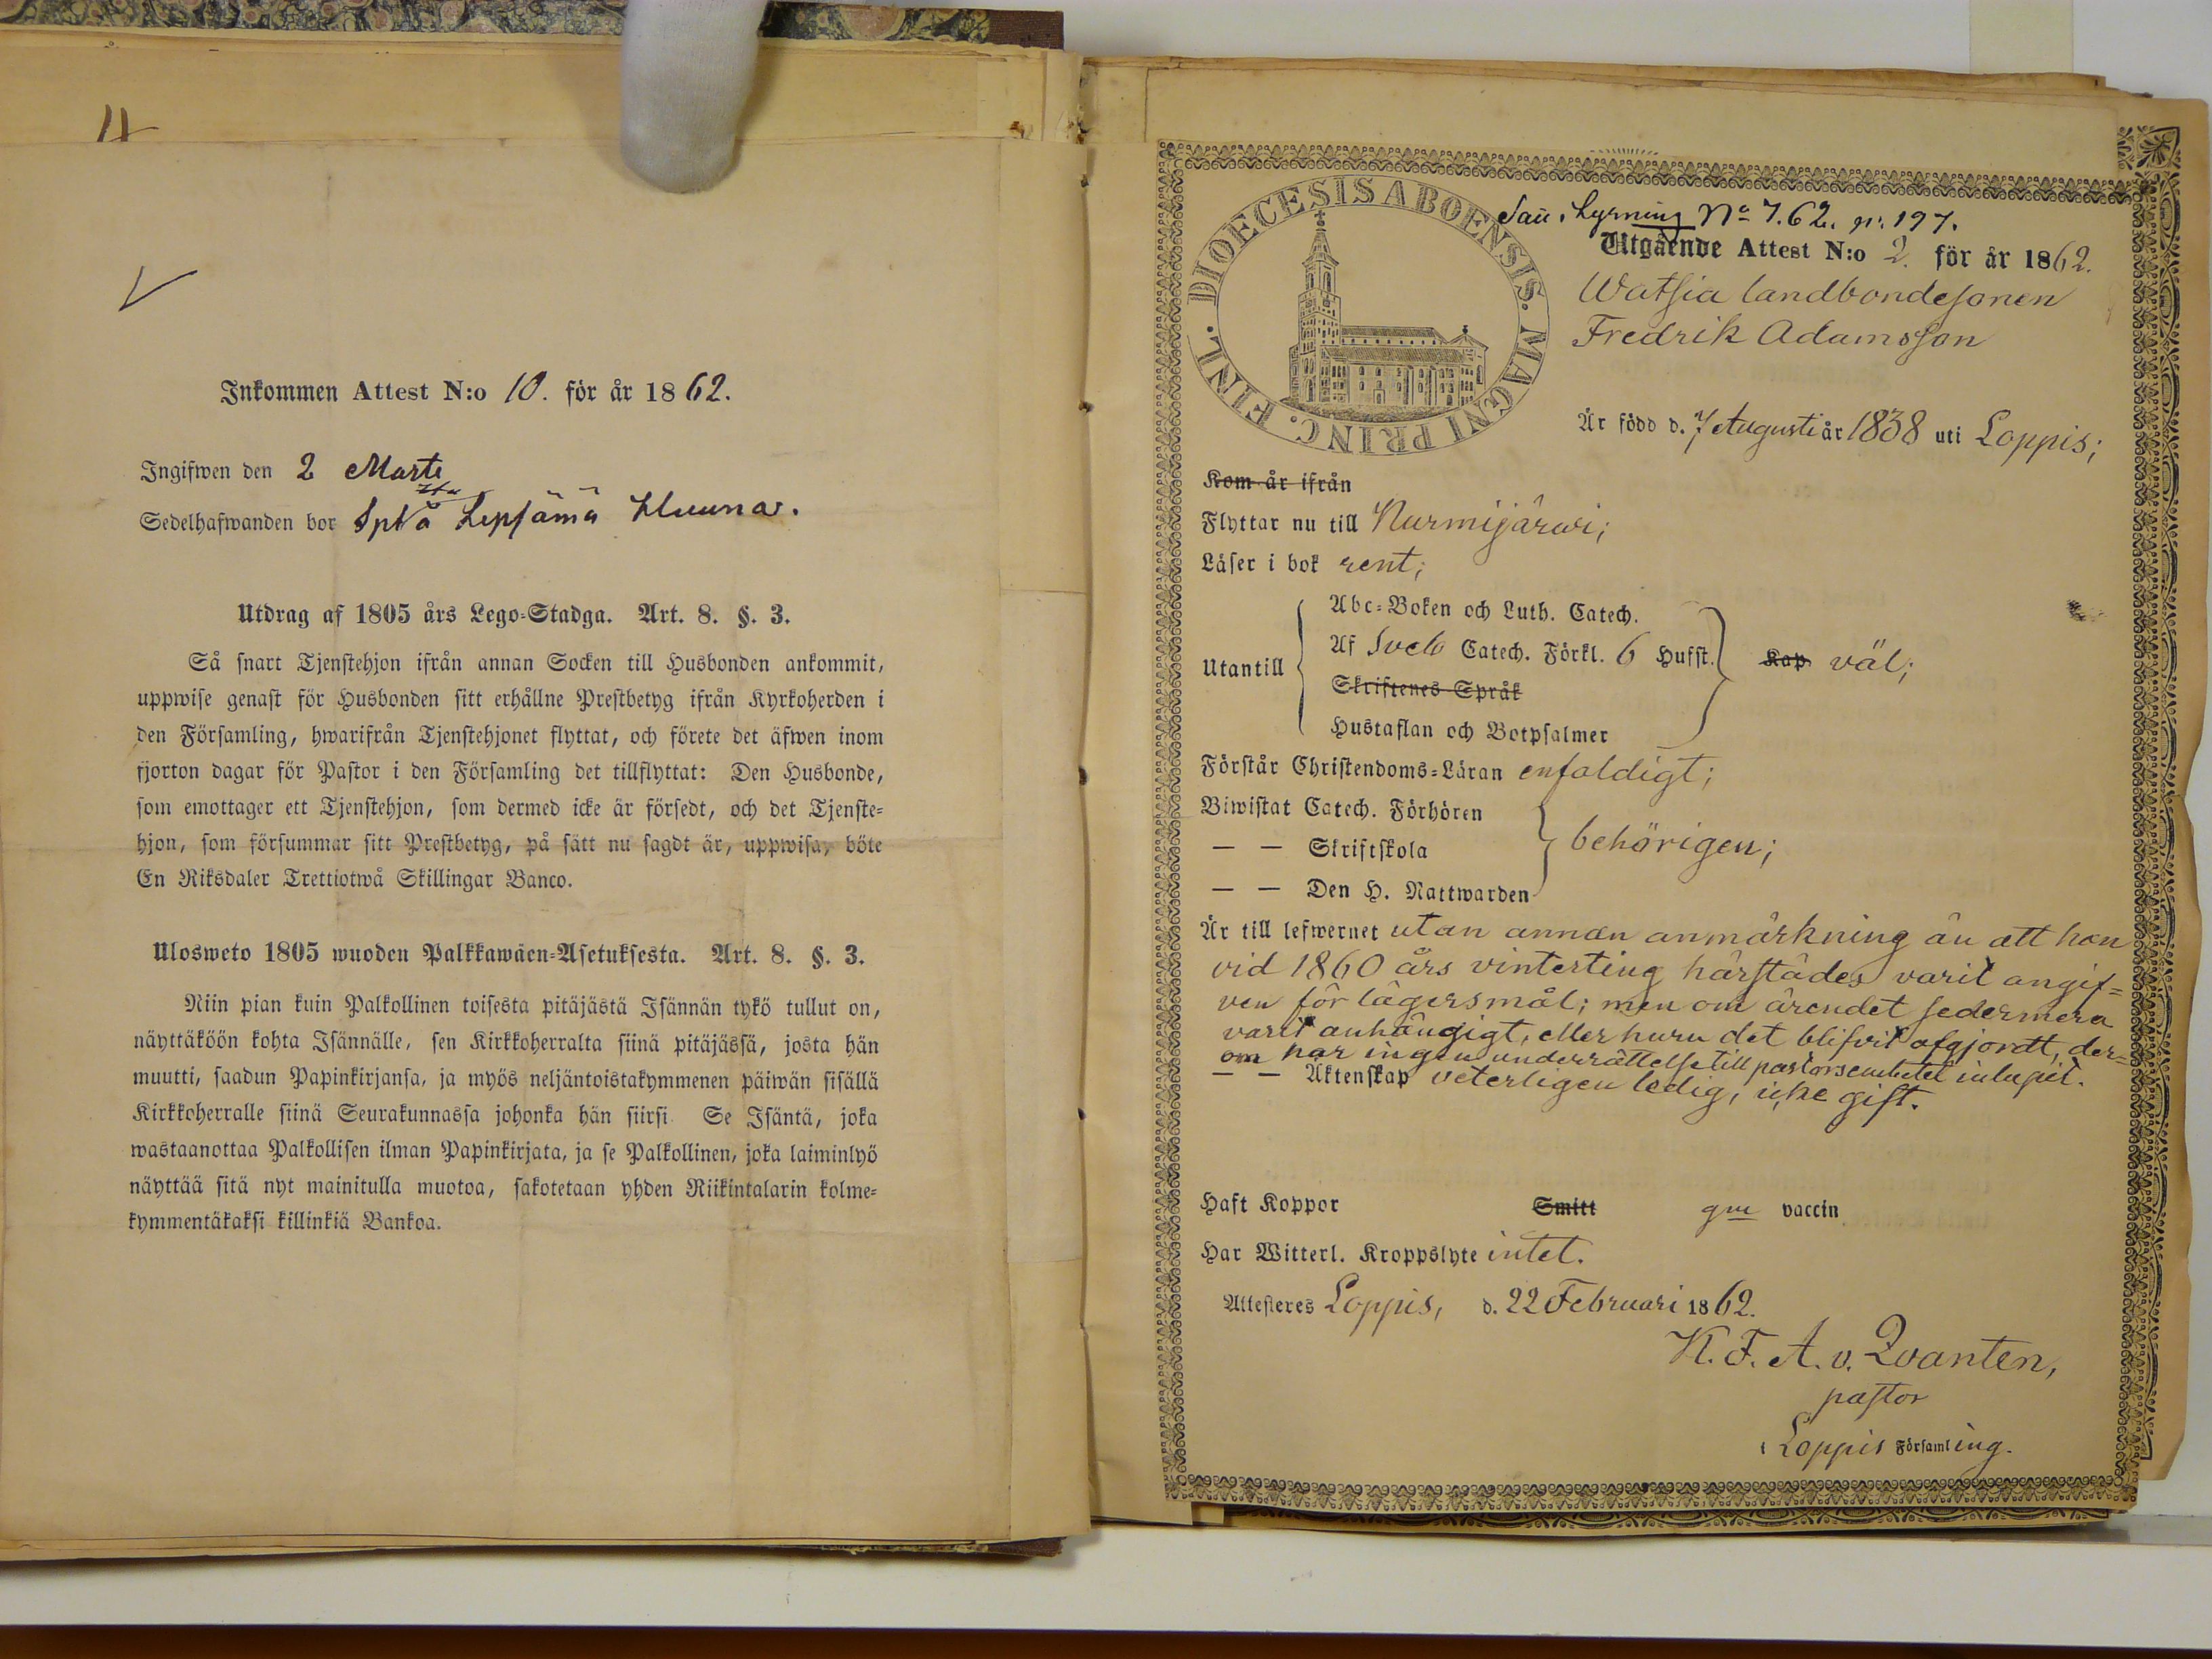 Inkommen Attest N:o 10. för år 1862.
Ingifwen den 2 Marti
Sedelhafwanden bor Lepsämä
Utdrag af 1805 års Lego-Stadga. Art. 8. §. 3.
Så snart Tjenstehjon ifrån annan Socken till Husbonden ankommit,
uppwise genast för Husbonden sitt erhållne Prestbetyg ifrån Kyrkoherden i
den Församling, hwarifrån Tjenstehjonet flyttat, och förete det äfwen inom
fjorton dagar för Pastor i den Församling det tillflyttat: Den Husbonde,
som emottager ett Tjenstehjon, som dermed icke är försedt, och det Tjenste-
hjon, som försummar sitt Prestbetyg, på sätt nu sagdt är, uppwisa, böte
En Riksdaler Trettiotwå Skillingar Banco.
Ulosweto 1805 wuoden Palkkawäen-Asetuksesta. Art. 8. §. 3.
Niin pian kuin Palkollinen toisesta pitäjästä Isännän tykö tullut on,
näyttäköön kohta Isännälle, sen Kirkkoherralta siinä pitäjässä, josta hän
muutti, saadun Papinkirjansa, ja myös neljäntoistakymmenen päiwän sisällä
Kirkkoherralle siinä Seurakunnassa johonka hän siirsi. Se Isäntä, joka
wastaanottaa Palkollisen ilman Papinkirjata, ja se Palkollinen, joka laiminlyö
näyttää sitä nyt mainitulla muotoa, sakotetaan yhden Riikintalarin kolme-
kymmentäkaksi killinkiä Bankoa.
DIOECESIS ABOENSIS. MAGNI PRINC. FINL.
Lysning No 7. 62. p. 197.
Utgående Attest N:o 2. för år 1862.
Watsia landbondesonen
Fredrik Adamsson
Är född d. 7 Augusti år 1838 uti Loppis;
Kom år ifrån
Flyttar nu till Nurmijärwi;
Läser i bok rent;
Abc-Boken och Luth. Catech.
Af Sveb Catech. Förkl. 6 Hufst.
Utantill Kap väl;
Skriftenes Språk
Hustaflan och Botpsalmer
Förstår Christendoms-Läran enfaldigt;
Biwistat Catech. Förhören
— — Skriftskola behörigen;
— — Den H. Nattwarden
Är till lefwernet utan annan anmärkning än att han
vid 1860 års vinterting härstädes varit angif=
ven för lägersmål; men om ärendet sedermera
varit anhängigt, eller huru det blifvit afgjordt, der=
om har ingen underrättelse till pastorsembetet inlupit.
— — Äktenskap veterligen ledig, icke gift.
Haft Koppor Smitt gm vaccin
Har Witterl. Kroppslyte intet.
Attesteras Loppis, d. 22 Februari 1862.
K. F. A. v. Qvanten,
pastor
i Loppis Församling.